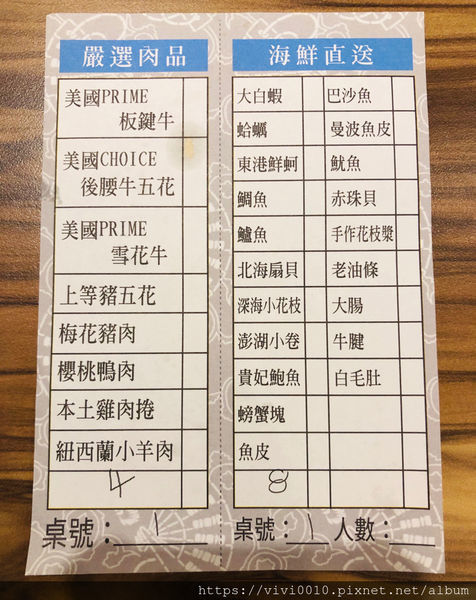 嚴選肉品
美國PRIME
板鍵牛
美國CHOICE
後腰牛五花
美國PRIME
雪花牛
上等豬五花
梅花豬肉
櫻桃鴨肉
本土雞肉捲
紐西蘭小羊肉
4
桌號：1
海鮮直送
大白蝦 巴沙魚
蛤蠣 曼波魚皮
東港鮮蚵 魷魚
鯛魚 赤珠貝
鱸魚 手作花枝漿
北海扇貝 老油條
深海小花枝 大腸
澎湖小卷 牛腱
貴妃鮑魚 白毛肚
螃蟹塊
魚皮
8
桌號：1 人數：
https://vivi0010.pixnet.net/album